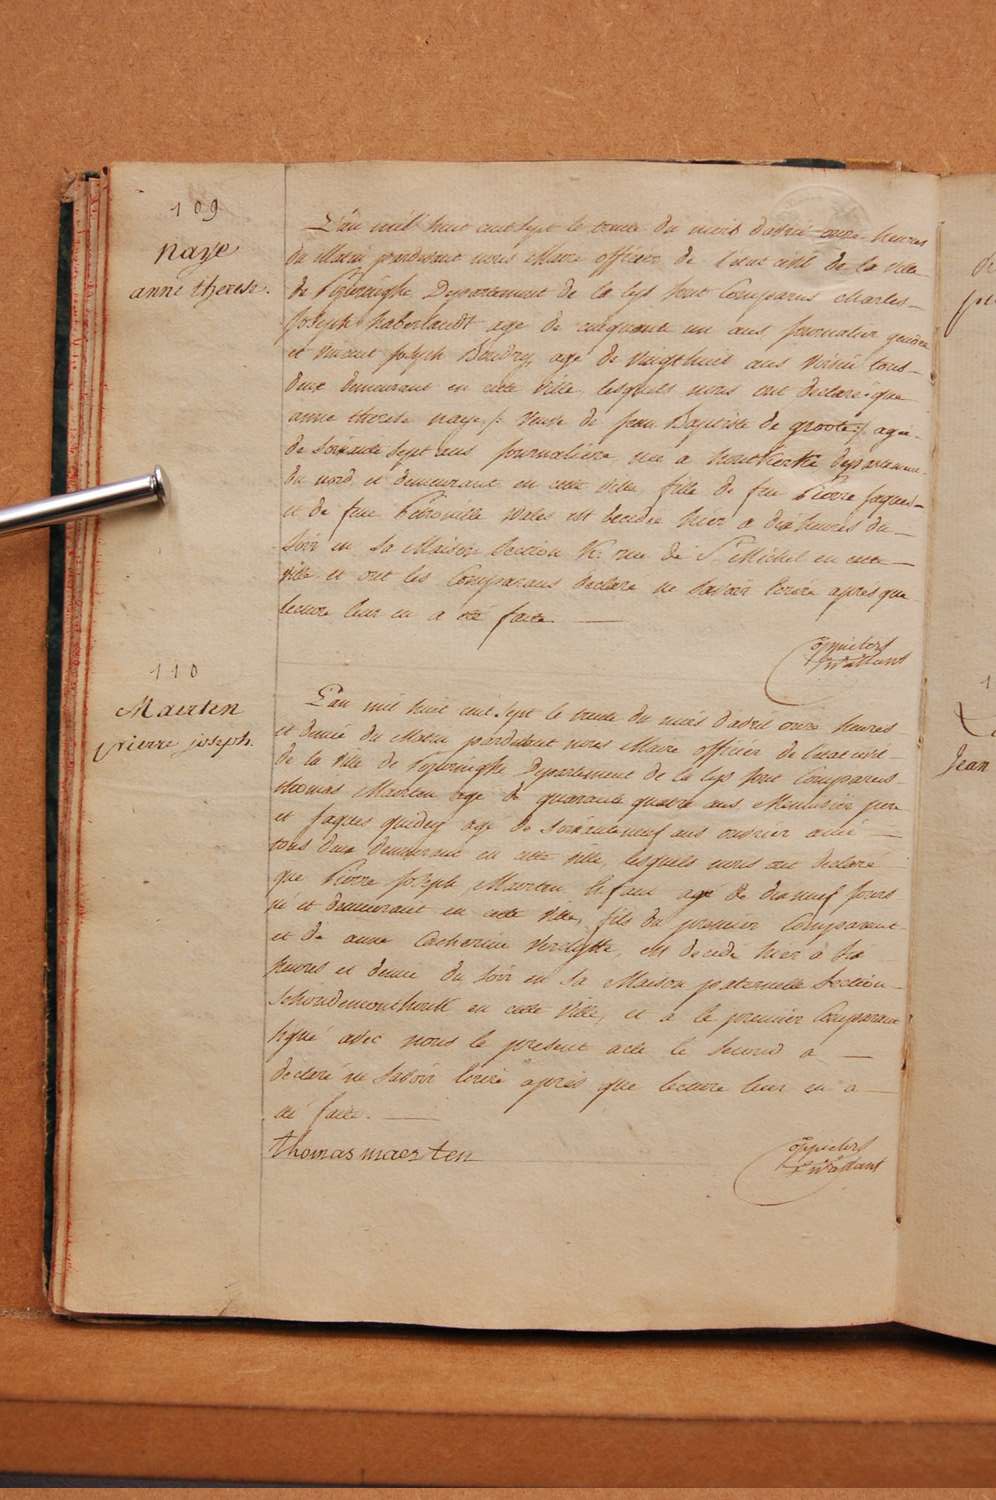 109
naye
anne therese.
L'an mil huit cent sept le trente du mois d'avril onze heures
du Matin pardevant nous Maire officier de l'état civil de la ville
de Poperinghe Departement de la lys sont Comparus charles
Joseph haberlandt agé de cinquante un ans journalier gendre
et vincent Joseph Baudry agé de vingthuit ans voisin tous
deux demeurans en cette ville, lesquels nous ont declaré que
anne therese naye /: veuve de Jean Baptiste de groote :/ agée
de soixante sept ans journalière née a houtkerke departement
du nord et demeurant en cette ville fille de feu Pierre Jaques
et de feue Petronille Wales est decedée hier a dix heures du
soir en sa Maison Section K: rue de St Michel en cette
ville et ont les Comparans declaré ne savoir Ecrire après que
lecture leur en a été faite
110
Maerten
pierre joseph.
L'an mil huit cent sept le trente du mois d'avril onze heures
et demie du Matin pardevant nous Maire officier de l'état civil
de la ville de Poperinghe Departement de la lys sont Comparus
thomas Maerten agé de quarante quatre ans Menuisier pere
et Jaques quidey agé de soixanteneuf ans ouvrier ami
tous deux demeurant en cette ville, lesquels nous ont declaré
que Pierre Joseph Maerten Enfant agé de dixneuf jours
né et demeurant en cette ville, fils du premier Comparant
et de anne Catherine est decedé hier à six
heures et demie du soir en sa Maison paternelle Section
Schoudemonthouk en cette ville, et a le premier Comparant
signé avec nous le present acte le second a
declaré ne savoir Ecrire après que lecture leur en a
été faite.
thomas maerten
Jean